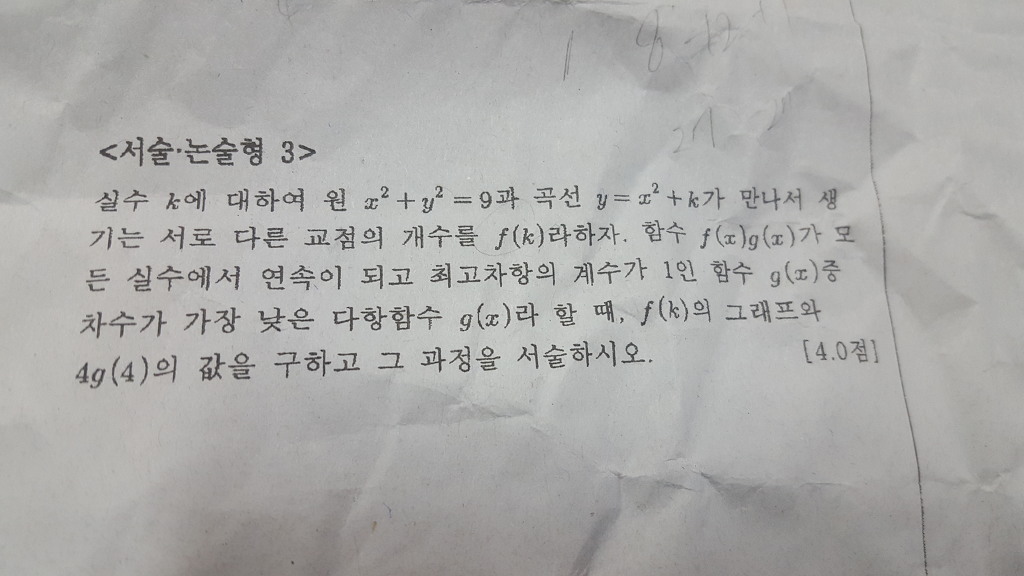 <서술·논술형 3>
실수 k에 대하여 원 x²+y²=9과 곡선 y=x²+k가 만나서 생
기는 서로 다른 교점의 개수를 f(k)라하자. 함수 f(x)g(x)가 모
든 실수에서 연속이 되고 최고차항의 계수가 1인 함수 g(x)중
차수가 가장 낮은 다항함수 g(x)라 할 때, f(k)의 그래프와
4g(4)의 값을 구하고 그 과정을 서술하시오. [4.0점]